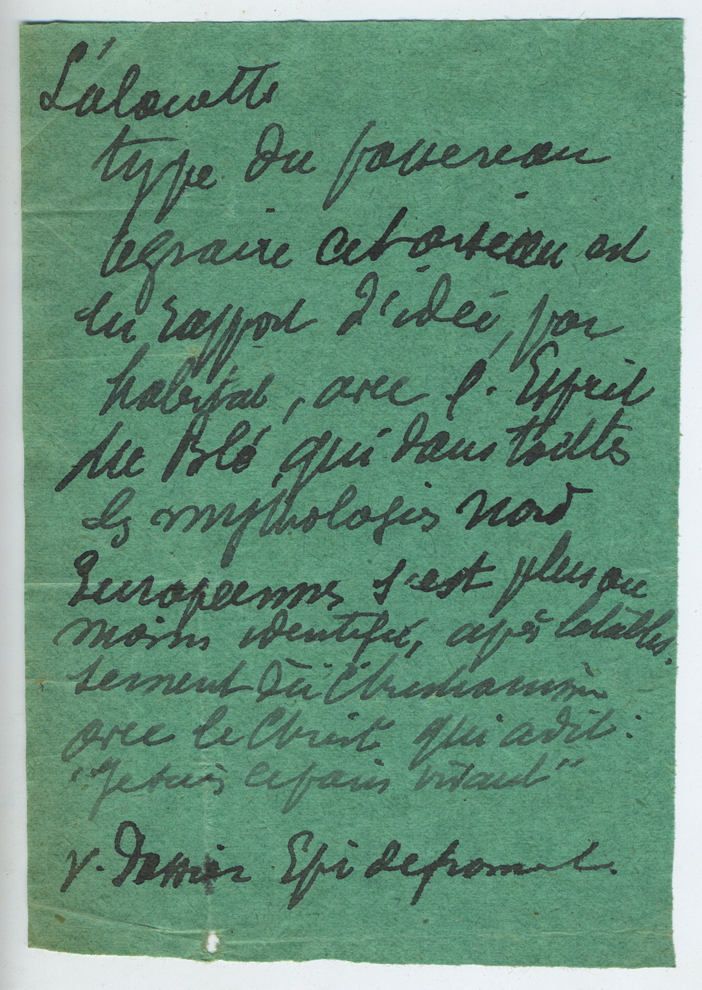 L'alouette
type du passereau
agraire cet oiseau est
en rapport d'idée, par
habitat, avec l'Esprit
du Blé, qui dans toutes
les mythologies Nord
Européennes s'est plus ou
moins identifié, après l'établis-
sement du Christianisme
avec le Christ qui a dit :
"Je suis le pain vivant"
v. Dossier Epi de froment.